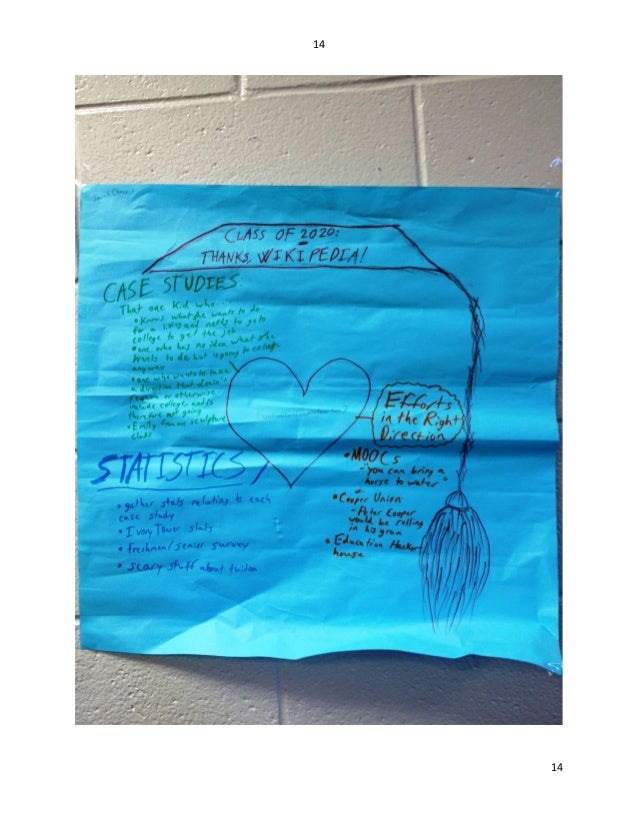 14
CLASS OF 2020:
THANKS, WIKIPEDIA!
CASE STUDIES
That one kid who...
• knows what s/he wants to do
for a living and needs to go to
college to get the job
• one who has no idea what s/he
wants to do, but is going to college
anyway
• one who wants to take
a direction that doesn't
require or otherwise
include college and is
therefore not going
• Emily from my sculpture
class
STATISTICS
• gather stats relating to each
case study
• Ivory Tower stats
• freshman/senior survey
• scary stuff about tuition
Efforts
in the Right
Direction
• MOOCs
- "you can bring a
horse to water"
• Cooper Union
- Peter Cooper
would be rolling
in his grave
• Education Hacker
house
14